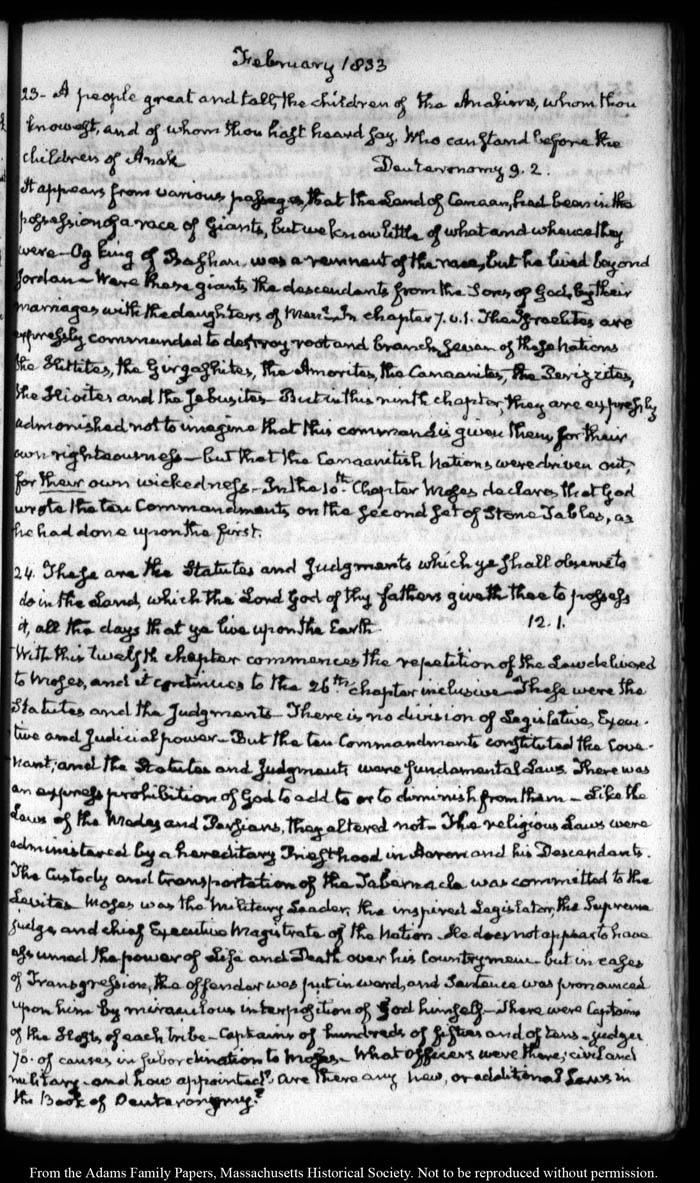 February 1833
23- A people great and tall, the children of the Anakims, whom thou
knowest, and of whom thou hast heard say. Who can stand before the
children of Anak Deuteronomy 9. 2.
It appears from various passages, that the Land of Canaan, had been in the
possession of a race of Giants, but we know little of what and whence they
were- Og King of Bashan was a remnant of the race, but he lived beyond
Jordan- Were these giants the descendants from the Sons of God, by their
marriages with the daughters of Men?- In chapter 7. v.1. The Israelites are
expressly commanded to destroy root and branch, seven of these Nations
the Hittites, the Girgashites, the Amorites, the Canaanites, the Perizzites,
the Hivites and the Jebusites- But in this ninth chapter, they are expressly
admonished not to imagine that this command is given them for their
own righteousness- but that the Canaanitish Nations were driven out,
for their own wickedness- In the 10th. Chapter Moses declares, that God
wrote the ten Commandments on the second set of Stone Tables, as
he had done upon the first.
24. These are the Statutes and Judgments which ye shall observe to
do in the Land, which the Lord God of thy fathers giveth thee to possess
it, all the days that ye live upon the Earth. 12. 1.
With this twelfth chapter commences the repetition of the Law delivered
to Moses, and it continues to the 26th. chapter inclusive- These were the
Statutes and the Judgments- There is no division of Legislative, Execu-
tive and Judicial power- But the ten Commandments constituted the Cove-
nant; and the Statutes and Judgments were fundamental Laws. There was
an express prohibition of God to add to or to diminish from them- Like the
Laws of the Medes and Persians, they altered not- The religious Laws were
administered by a hereditary Priesthood in Aaron and his Descendants.
The Custody and transportation of the Tabernacle was committed to the
Levites Moses was the Military Leader, the inspired Legislator, the Supreme
judge and chief Executive Magistrate of the Nation- He does not appear to have
assumed the power of Life and Death over his Countrymen- but in cases
of Transgression, the offender was put in ward, and Sentence was pronounced
upon him by miraculous interposition of God himself- There were Captains
of the Hosts of each tribe- Captains of hundreds of fifties and of tens- judges
70. of causes in subordination to Moses- What Officers were there; civil and
military- and how appointed? Are there any new, or additional Laws in
the Book of Deuteronomy?
From the Adams Family Papers, Massachusetts Historical Society. Not to be reproduced without permission.